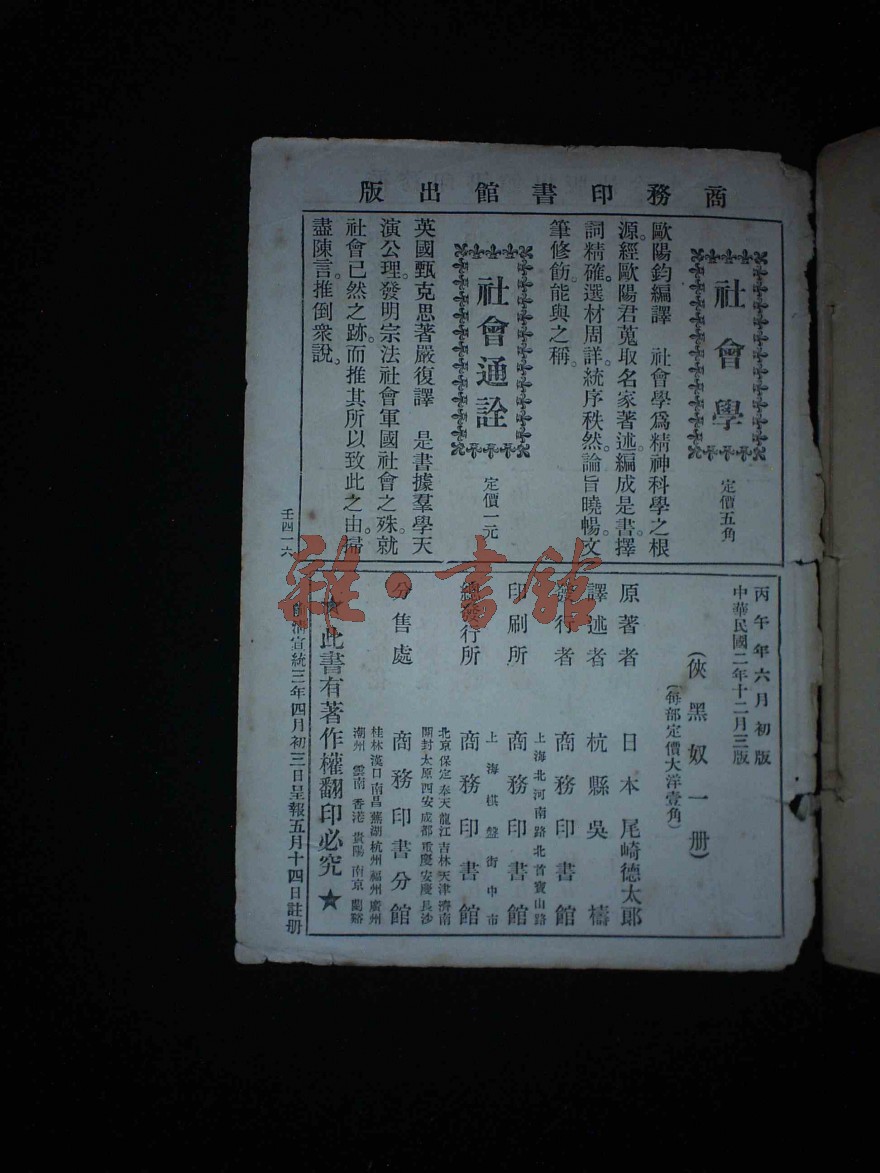 商務印書館出版
社會學
定價五角
歐陽鈞編譯 社會學爲精神科學之根
源。經歐陽君蒐取名家著述。編成是書。擇
詞精確。選材周詳。統序秩然。論旨曉暢。文
筆修飭。能與之稱。
社會通詮
定價一元
英國甄克思著嚴復譯 是書據羣學天
演公理。發明宗法社會軍國社會之殊。就
社會已然之跡。而推其所以致此之由。掃
盡陳言。推倒衆說。
壬四一六
丙午年六月初版
中華民國二年十二月三版
(俠黑奴一册)
(每部定價大洋壹角)
原著者 日本尾崎德太郎
譯述者 杭縣吳檮
發行者 商務印書館
上海北河南路北首寶山路
印刷所 商務印書館
上海棋盤街中市
總發行所 商務印書館
北京保定奉天龍江吉林天津濟南
開封太原西安成都重慶安慶長沙
分售處 商務印書分館
桂林漢口南昌蕪湖杭州福州廣州
潮州 雲南 香港 貴陽 南京 蘭谿
★此書有著作權翻印必究★
前清宣統三年四月初三日呈報五月十四日註册
雜·書館